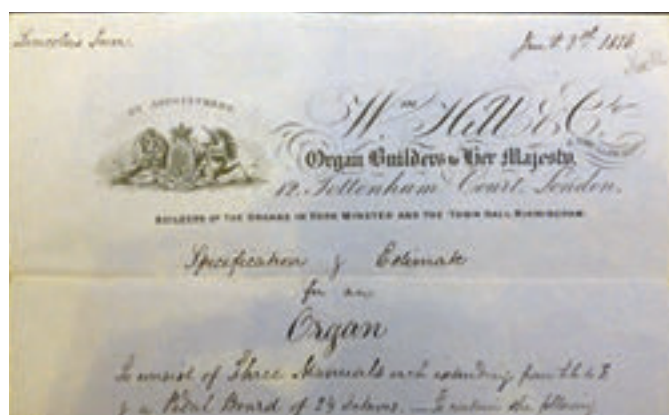 Lincolns Inn.
BY APPOINTMENT
Wm Hill & Co
Organ Builders to Her Majesty,
12, Tottenham Court, London,
BUILDERS OF THE ORGANS IN YORK MINSTER AND THE TOWN HALL BIRMINGHAM.
Specification & Estimate
for an
Organ
To consist of Three Manuals each extending from
& a Pedal Board of 2½ octaves. — To contain the following